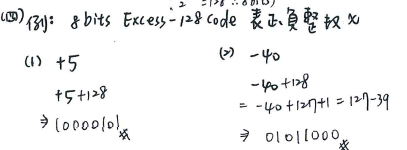 (四) 例: 8 bits Excess-128 code 表正負整數
(1) +5
+5+128
⇒ 10000101
(2) -40
-40+128
= -40+127+1 = 127-39
⇒ 01011000